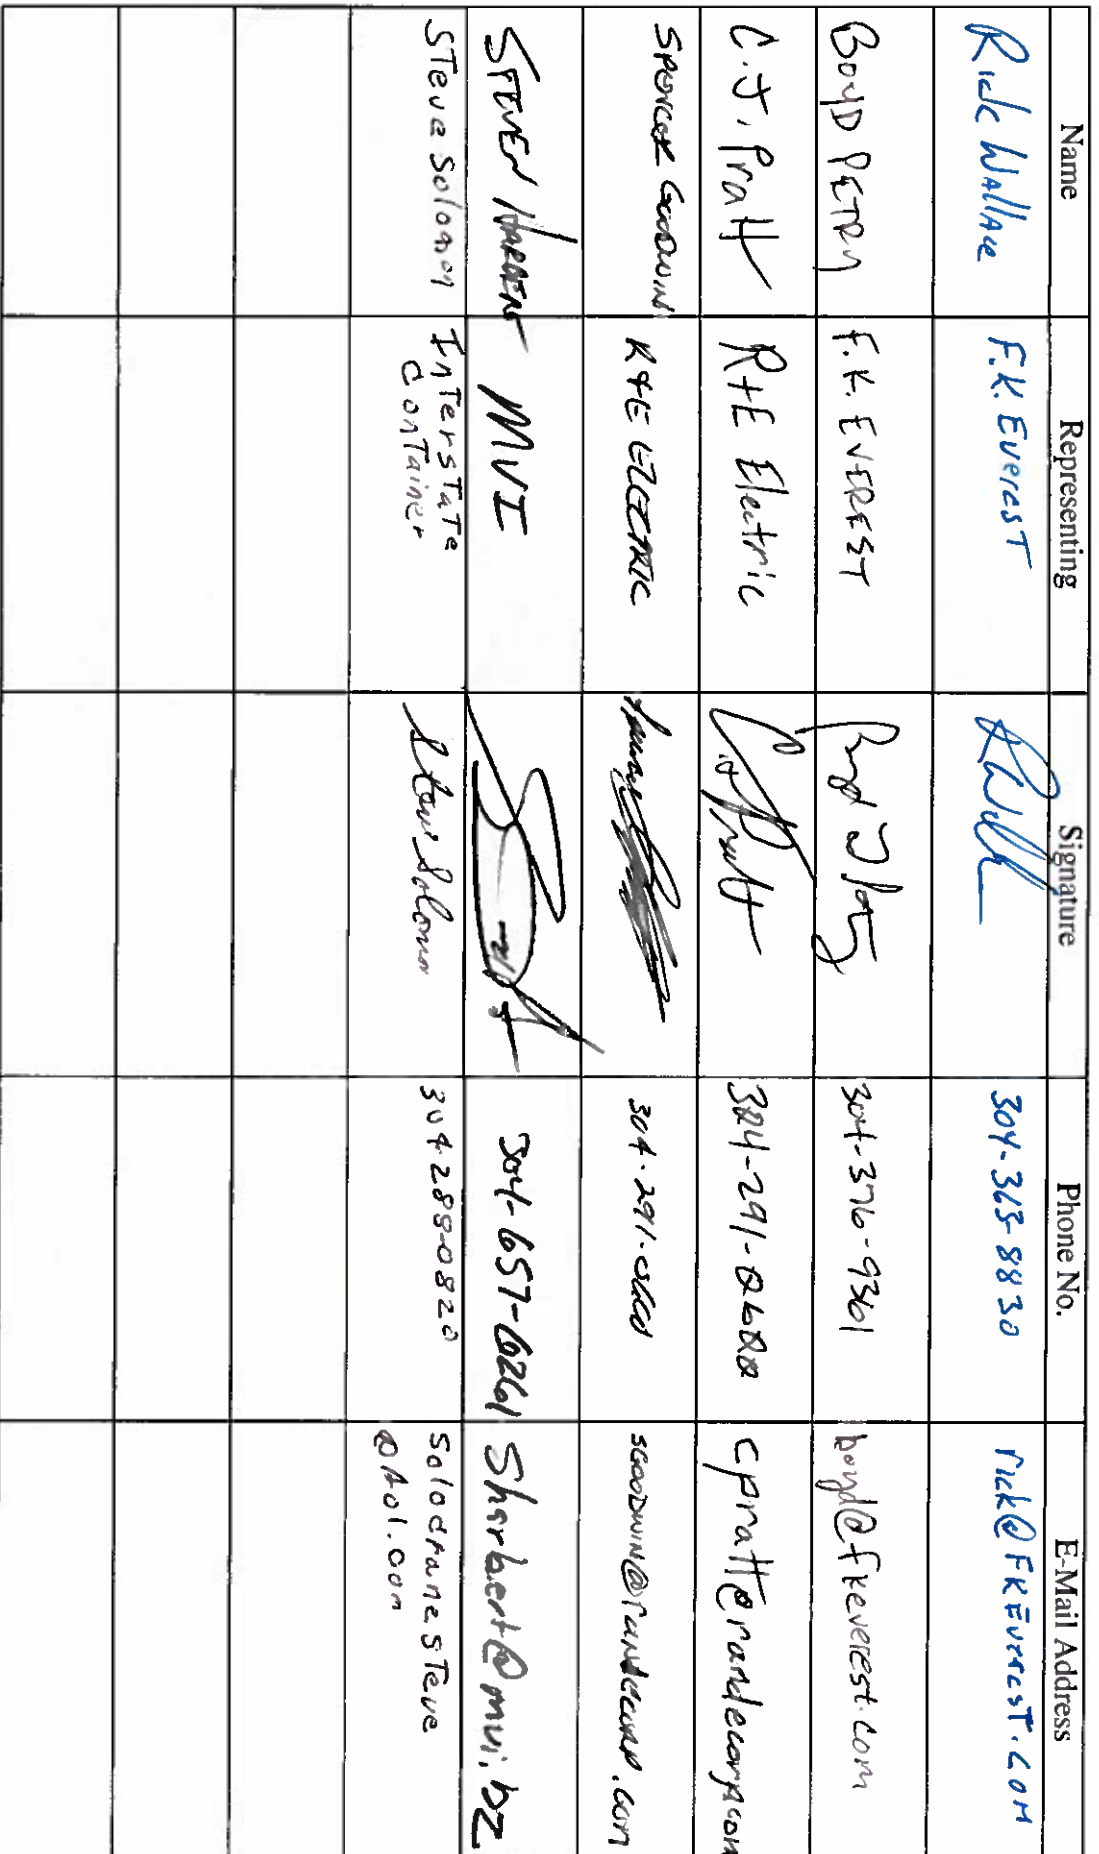 Name Representing Signature Phone No. E-Mail Address
Rick Wallace F.K. Everest RWall 304-363-8830 rick@FKEverest.com
Boyd Petry F.K. EVEREST 304-376-9361 boyd@fkeverest.com
C.J. Pratt R+E Electric CJ Pratt 304-291-0600 cpratt@randecorp.com
Spencer Goodwin R+E ELECTRIC 304-291-0600 sgoodwin@randecorp.com
STEVEN HARBERT MVI 304-657-6261 Sharbert@mvi.bz
STeve Solomon InTersTaTe Steve Solomon 304 289-0820 SolocranesTeve
conTainer @Aol.com